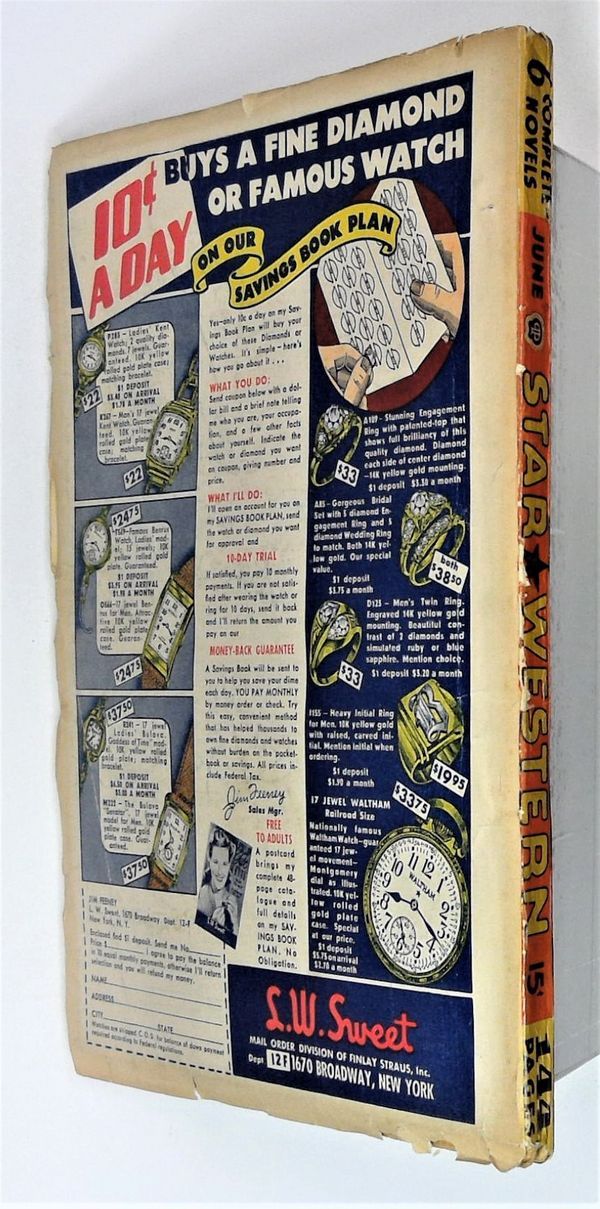 10¢
A DAY
BUYS A FINE DIAMOND
OR FAMOUS WATCH
ON OUR
SAVINGS BOOK PLAN
Ladies' Kent
Watch; 2 quality dia-
monds, 7 jewels. Guar-
anteed. 10K yellow
rolled gold plate case;
matching bracelet.
$1 DEPOSIT
ON ARRIVAL
A MONTH
$22
Man's 17 jewel
Kent Watch. Guaran-
teed. 10K yellow
rolled gold plate
case; matching
bracelet.
$22
$2475
Famous Benrus
Watch, Ladies mod-
el; 15 jewels; 10K
yellow rolled gold
plate. Guaranteed.
$1 DEPOSIT
ON ARRIVAL
A MONTH
17 jewel Ben-
rus for Men. Attrac-
tive 10K yellow
rolled gold plate
case. Guaran-
teed.
$2475
$3750
17 jewel
Ladies' Bulova.
Goddess of Time mod-
el. 10K yellow rolled
gold plate; matching
bracelet.
$1 DEPOSIT
ON ARRIVAL
A MONTH
The Bulova
"Senator". 17 jewel
model for Men. 10K
yellow rolled gold
plate case. Guar-
anteed.
$3750
Yes—only 10c a day on my Sav-
ings Book Plan will buy your
choice of these Diamonds or
Watches. It's simple—here's
how you go about it ...
WHAT YOU DO:
Send coupon below with a dol-
lar bill and a brief note telling
me who you are, your occupa-
tion, and a few other facts
about yourself. Indicate the
watch or diamond you want
on coupon, giving number and
price.
WHAT I'LL DO:
I'll open an account for you on
my SAVINGS BOOK PLAN, send
the watch or diamond you want
for approval and
10-DAY TRIAL
If satisfied, you pay 10 monthly
payments. If you are not satis-
fied after wearing the watch or
ring for 10 days, send it back
and I'll return the amount you
pay on our
MONEY-BACK GUARANTEE
A Savings Book will be sent to
you to help you save your dime
each day. YOU PAY MONTHLY
by money order or check. Try
this easy, convenient method
that has helped thousands to
own fine diamonds and watches
without burden on the pocket-
book or savings. All prices in-
clude Federal Tax.
Jim Feeney
Sales Mgr.
FREE
TO ADULTS
A postcard
brings my
complete 48-
page cata-
logue and
full details
on my SAV-
INGS BOOK
PLAN. No
Obligation.
A169 - Stunning Engagement
Ring with patented-top that
shows full brilliancy of this
quality diamond. Diamond
each side of center diamond
—14K yellow gold mounting.
$1 deposit $3.20 a month
$33
A85 - Gorgeous Bridal
Set with 5 diamond En-
gagement Ring and 5
diamond Wedding Ring
to match. Both 14K yel-
low gold. Our special
value.
$1 deposit
$3.75 a month
both
$3850
D123 - Men's Twin Ring.
Engraved 14K yellow gold
mounting. Beautiful con-
trast of 2 diamonds and
simulated ruby or blue
sapphire. Mention choice.
$1 deposit $3.20 a month
$33
Heavy Initial Ring
for Men. 10K yellow gold
with raised, carved ini-
tial. Mention initial when
ordering.
$1 deposit
$1.90 a month
$1995
$3375
17 JEWEL WALTHAM
Railroad Size
Nationally famous
Waltham Watch—guar-
anteed 17 jew-
el movement—
Montgomery
dial as illus-
trated. 10K yel-
low rolled
gold plate
case. Special
at our price.
$1 deposit
on arrival
a month
WALTHAM
JIM FEENEY
L. W. Sweet, 1670 Broadway, Dept. 12-F
New York, N. Y.
Enclosed find $1 deposit. Send me No.
Price $ I agree to pay the balance
in 10 equal monthly payments, otherwise I'll return
selection and you will refund my money.
NAME
ADDRESS
CITY STATE
Watches are shipped C. O. D. for balance of down payment
required according to Federal regulations.
L.W. Sweet
MAIL ORDER DIVISION OF FINLAY STRAUS, Inc.
Dept 12F 1670 BROADWAY, NEW YORK
6 COMPLETE NOVELS
JUNE
STAR WESTERN
15¢
144 PAGES